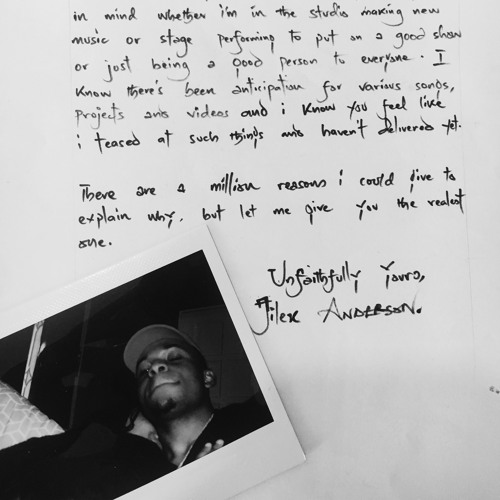 in mind whether i'm in the studio making new
music or stage performing to put on a good show
or just being a good person to everyone. I
know there's been anticipation for various songs,
projects and videos and i know you feel like
i teased at such things and haven't delivered yet.
There are a million reasons i could give to
explain why, but let me give you the realest
one.
Unfaithfully Yours,
Alex ANDERSON.